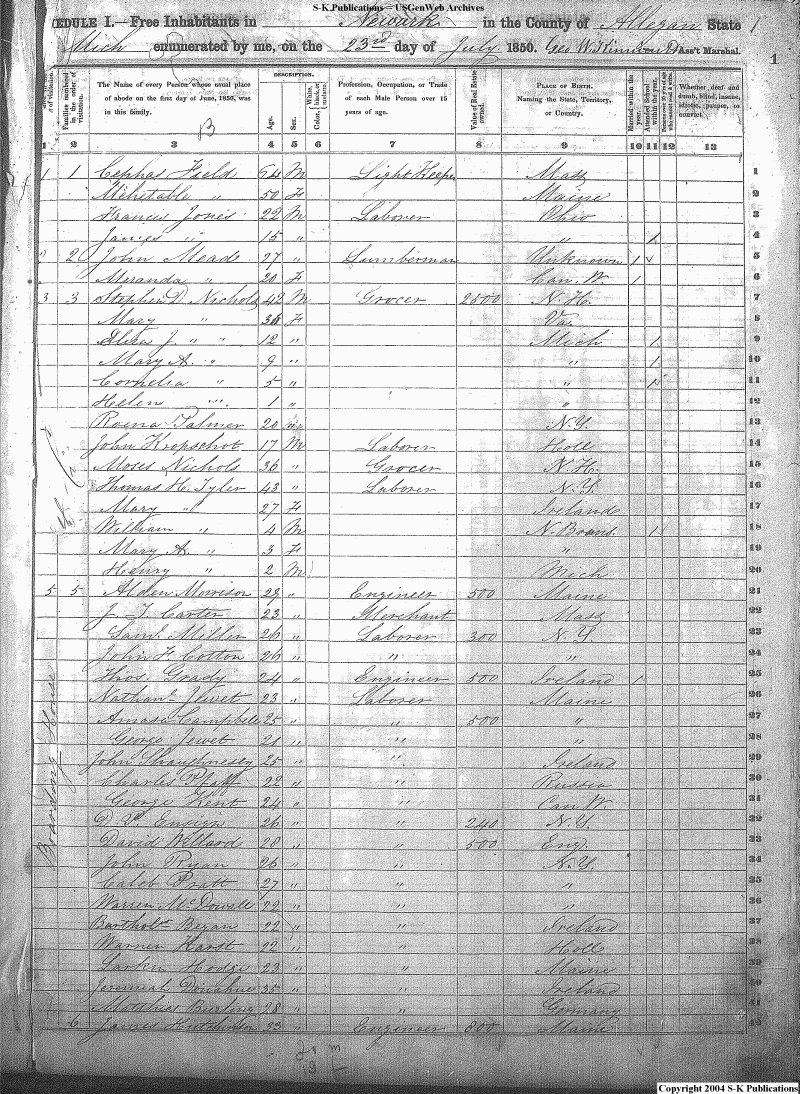 S-K Publications – USGenWeb Archives
EDULE I.—Free Inhabitants in Newark in the County of Allegan State
Mich enumerated by me, on the 23rd day of July 1850. Geo W. Ass't Marshal.
1
DESCRIPTION.
Families numbered in the order of visitation.
The Name of every Person whose usual place of abode on the first day of June, 1850, was in this family.
Age.
Sex.
Color, White, black, or mulatto.
Profession, Occupation, or Trade of each Male Person over 15 years of age.
Value of Real Estate owned.
PLACE OF BIRTH. Naming the State, Territory, or Country.
Married within the year.
Attended School within the year.
Whether deaf and dumb, blind, insane, idiotic, pauper, or convict.
B
1 2 3 4 5 6 7 8 9 10 11 12 13
1 1 Cephas Field 54 M Light Keeper Mass 1
Mehetable " 50 F Maine 2
Francis Jones 22 M Laborer Ohio 3
James " 15 " " 1 4
2 2 John Meade 27 " Lumberman Unknown 1 5
Miranda " 20 F Can. W. 1 6
3 3 Stephen D. Nichols 42 M Grocer 2500 N.H. 7
Mary " 36 F Va. 8
Eliza J. " " 12 " Mich 1 9
Mary A. " 9 " " 1 10
Cornelia " 5 " " 1 11
Helen " 1 " "
Roena Palmer 20 " N.Y. 13
John Kropschot 17 M Laborer Holl 14
Moses Nichols 36 " Grocer N.H. 15
Thomas H. Tyler 43 " Laborer N.Y. 16
Mary " 27 F Ireland 17
William " 4 M N. Bruns. 1 18
Mary A. " 3 F " 19
Henry " 2 M Mich 20
5 5 Alden Morrison 29 " Engineer 500 Maine 21
J. T. Carter 23 " Merchant Mass 22
Saml Miller 26 " Laborer 300 N.Y. 23
John F Cotton 26 " " " 24
Thos. Grady 24 " Engineer 500 Ireland 1 25
Nathanl Jewet 23 " Laborer Maine 26
Amasa Campbell 25 " " 500 " 27
George Jewet 21 " " " 28
John Shaughnessy 25 " " Ireland 29
Charles Pfaff 22 " " Russia 30
George Kent 24 " " Can W. 31
D. Ensign 26 " " 240 N.Y. 32
David Willard 28 " " 500 Eng. 33
John Ryan 26 " " N.Y. 34
Caleb Pratt 27 " " " 35
Warren McDowell 22 " " " 36
Bartholt Began 22 " " Ireland 37
Warner Karst 22 " " Holl 38
Larkin Hodge 23 " " Maine 39
Jeremiah Donahue 35 " " Ireland 40
Matthias Burling 28 " " Germany 41
6 James Hutchinson 33 " Engineer 800 Maine 42
Boarding House
Copyright 2004 S-K Publications